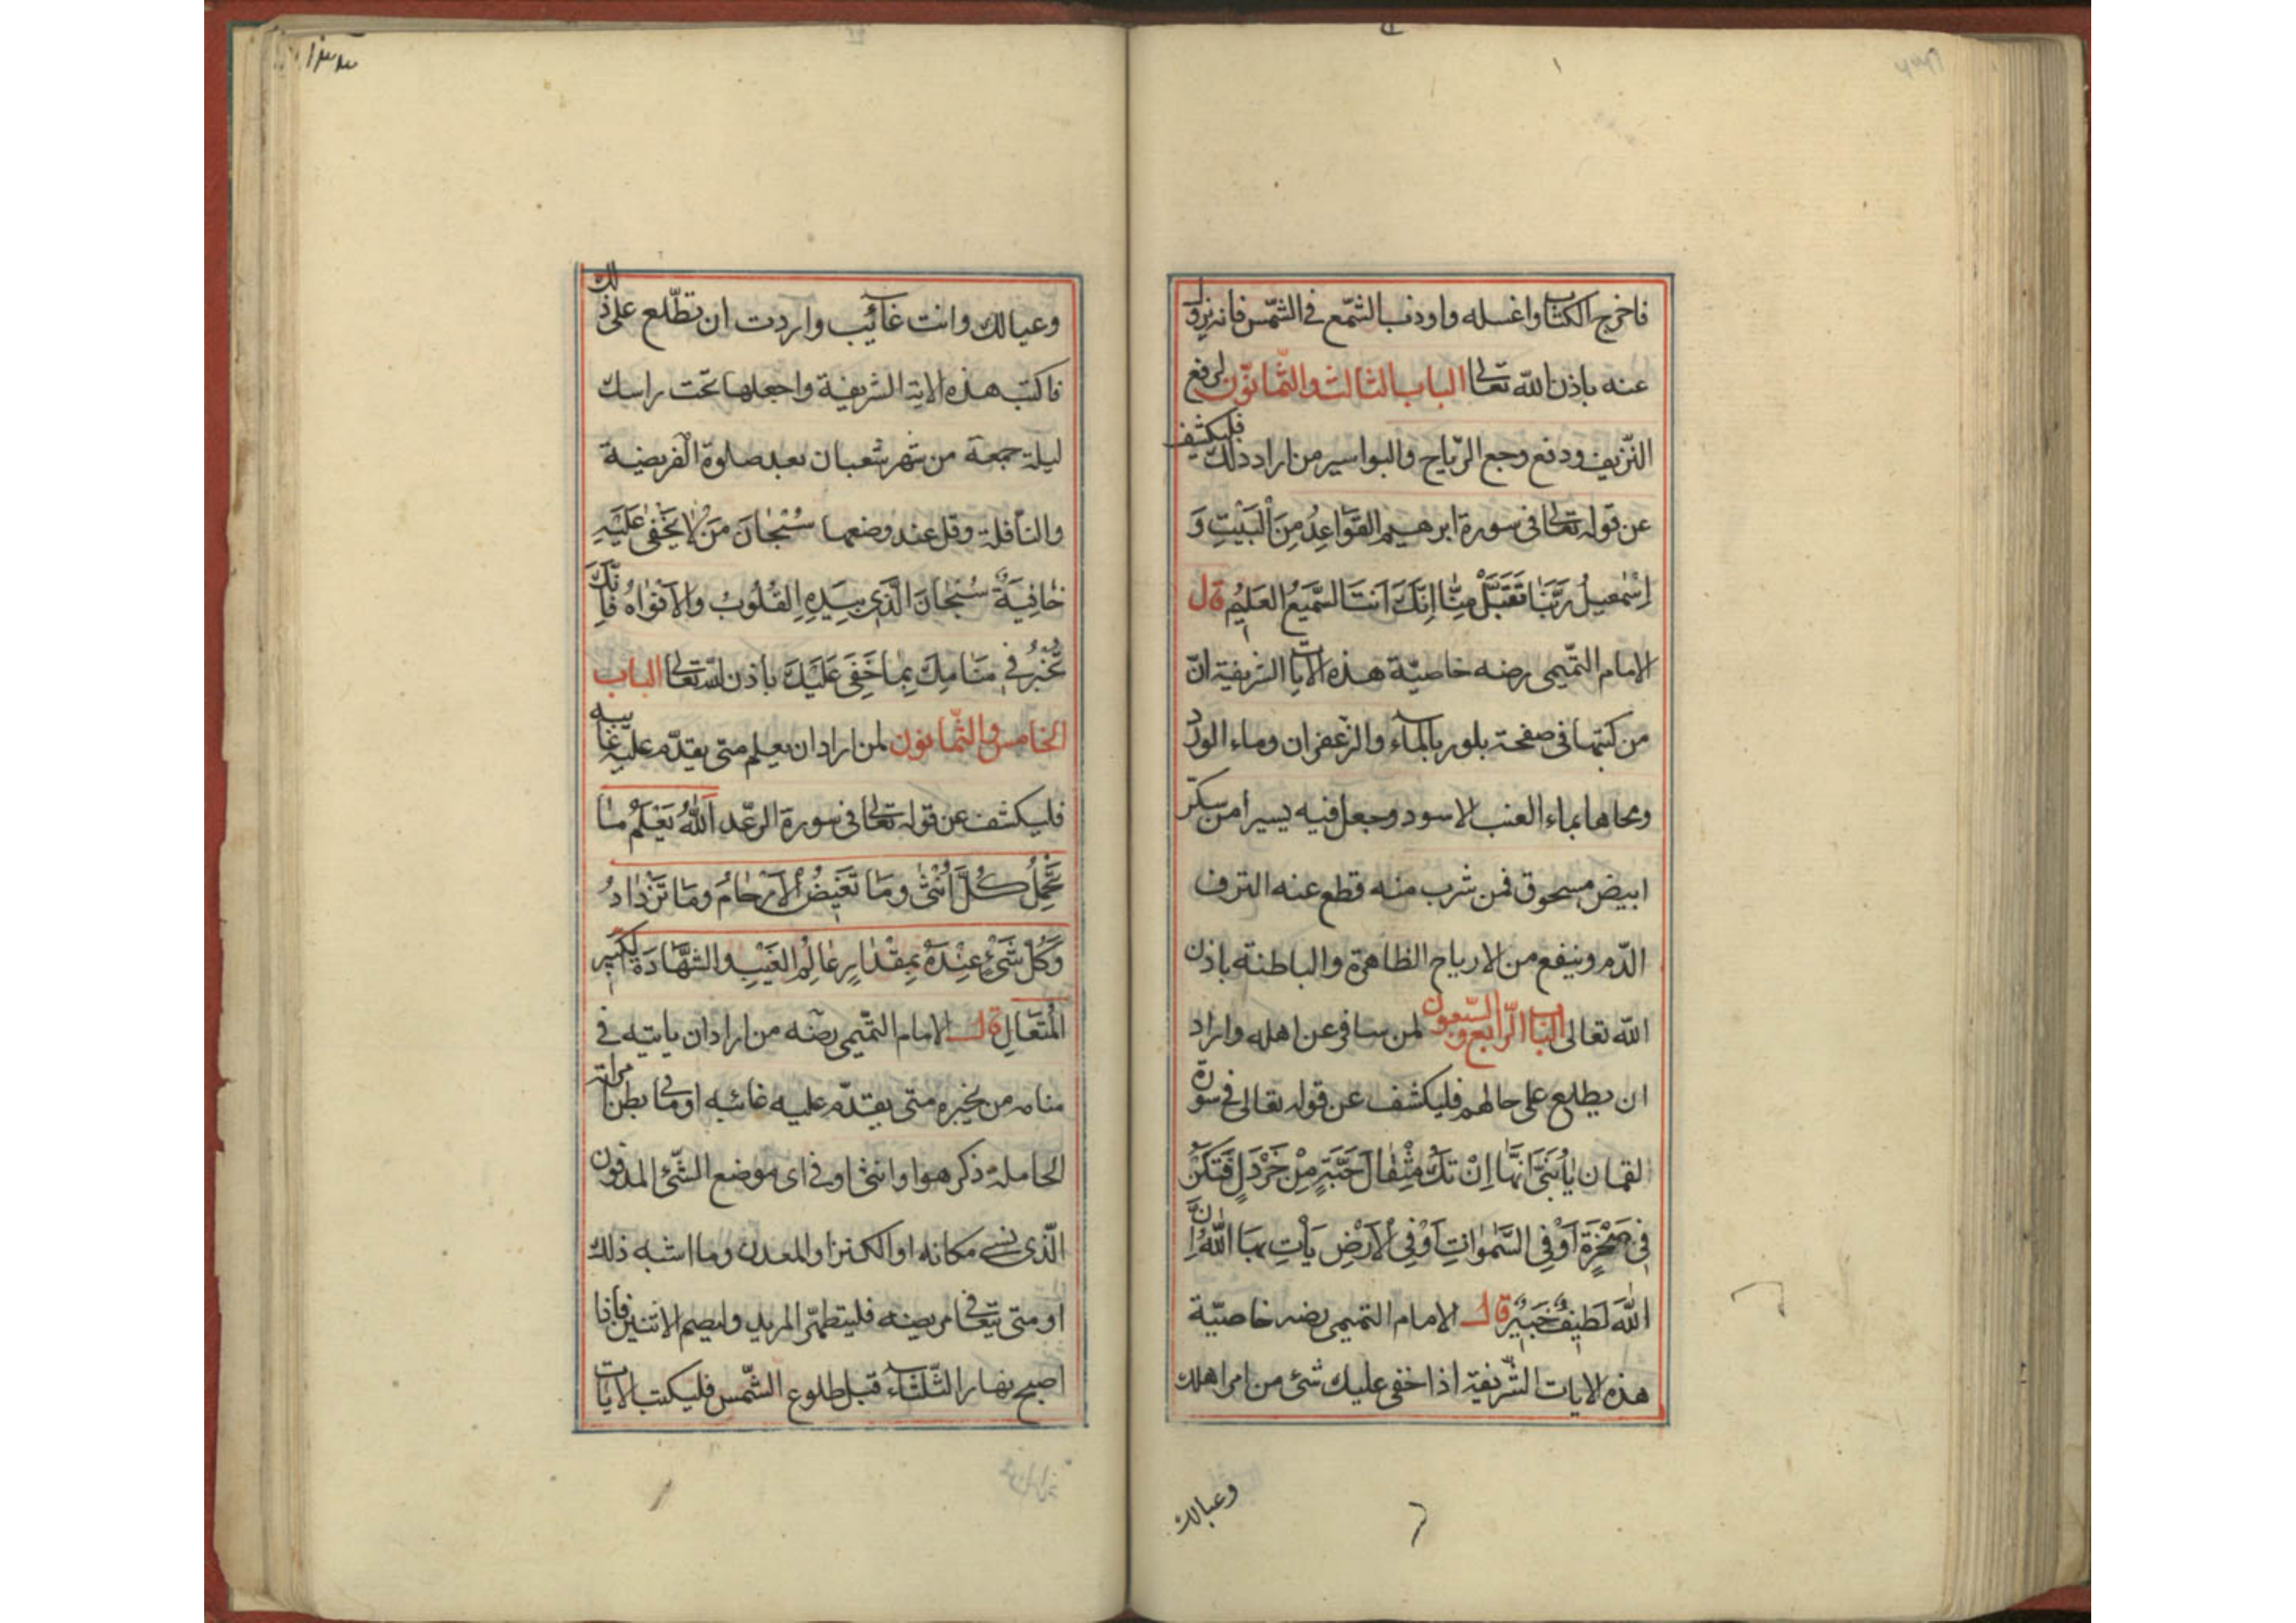 فاخرج الكتاب واغسله واوذنب الشمع في الشمس فانه يزول
عنه باذن الله تعالى الباب الثالث والثمانون لرفع
النزيف ودفع وجع الرياح والبواسير من اراد ذلك فليكشف
عن قوله تعالى في سورة ابرهيم القَوَاعِدُ مِنَ الْبَيْتِ وَ
اِسْمٰعيلُ رَبَّنَا تَقَبَّلْ مِنَّا اِنَّكَ اَنتَ السَّمِيعُ العَلِيمُ قال
الامام التميمى رضه خاصيّة هذه الايات الشريفة انّ
من كتبها فى صفحة بلور بالمآء والزعفران وماء الورد
ومحاها بماء العنب الاسود وجعل فيه يسيرا من سكّر
ابيض مسحوق فمن شرب منه قطع عنه النزف
الدّم وينفع من الارياح الظاهرة والباطنة باذن
الله تعالى الباب الرّابع والسّبعون لمن سافر عن اهله واراد
ان يطلع على حالهم فليكشف عن قوله تعالى في سورة
لقمان يٰا بُنَىَّ اِنَّهٰا اِنْ تَكُ مِثْقٰالَ حَبَّةٍ مِنْ خَرْدَلٍ فَتَكُنْ
فِى صَخْرَةٍ اَوْفِى السَّمٰوٰاتِ اَوْفِى الْاَرْضِ يَأْتِ بِهَا اللّٰهُ اِنَّ
اللّٰهَ لَطِيفٌ خَبِيرٌ قال الامام التميمى رضه خاصيّة
هذه الايات الشّريفة اذا خفى عليك شئ من امر اهلك
وعيالك
وعيالك وانت غآئب واردت ان تطّلع على ذلك
فاكتب هذه الاية الشريفة واجعلها تحت راسك
ليلة جمعة من شهر شعبان بعد صلوة الفريضة
والنّافلة وقل عند وضعها سُبْحٰانَ مَنْ لٰا يَخْفٰى عَلَيْهِ
خٰافِيَةٌ سُبْحٰانَ الَّذِى بِيَدِهِ القُلُوبُ والاَفْوٰاهُ فَاِنَّكَ
تُخْبَرُ فِى مَنَامِكَ بِمٰا خَفِىَ عَلَيْكَ باذن الله تعالى الباب
الخامس والثّمانون لمن اراد ان يعلم متى يقدّم عليه غايبه
فليكشف عن قوله تعالى فى سورة الرّعد اَللّٰهُ يَعْلَمُ مٰا
تَحْمِلُ كُلُّ اُنْثٰى وَمَا تَغِيضُ الْاَرْحٰامُ وَمَا تَزْدٰادُ
وَكُلُّ شَىْءٍ عِنْدَهُ بِمِقْدٰارٍ عٰالِمُ الغَيْبِ والشَّهٰادَةِ الكَبِير
الْمُتَعٰالِ قال الامام التّميمى رضه من اراد ان ياتيه فى
منامه من يخبره متى يقدّم عليه غائبه او ما فى بطن امراته
الحاملة ذكر هو او انثى او فى اى موضع الشّئ المدفون
الّذى نسى مكانه او الكنز او المعدن وما اشبه ذلك
او متى يتعافى مريضه فليتطهّر المريد وليصم الاثنين فاذا
اصبح نهار الثّلثآء قبل طلوع الشّمس فليكتب الايات